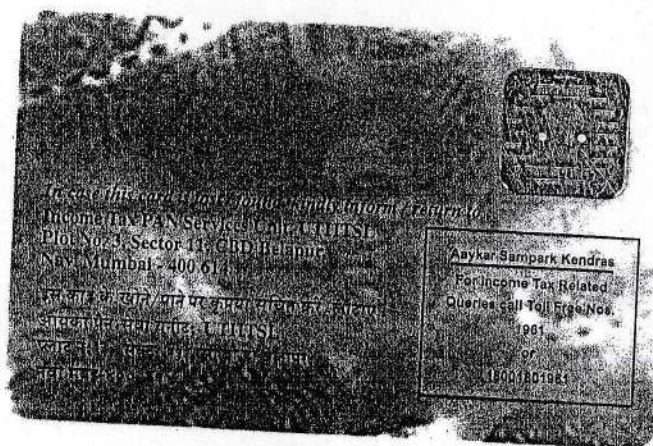 In case this card is lost / found, kindly inform / return to :
Income Tax PAN Services Unit, UTIITSL
Plot No. 3, Sector 11, CBD Belapur,
Navi Mumbai - 400 614.
इस कार्ड के खोने / पाने पर कृपया सूचित करें / लौटाएं :
आयकर पैन सेवा यूनीट, UTIITSL
प्लाट नं
नवी मुंबई
Aaykar Sampark Kendras
For Income Tax Related
Queries call Toll Free Nos.
1961
or
18001801961